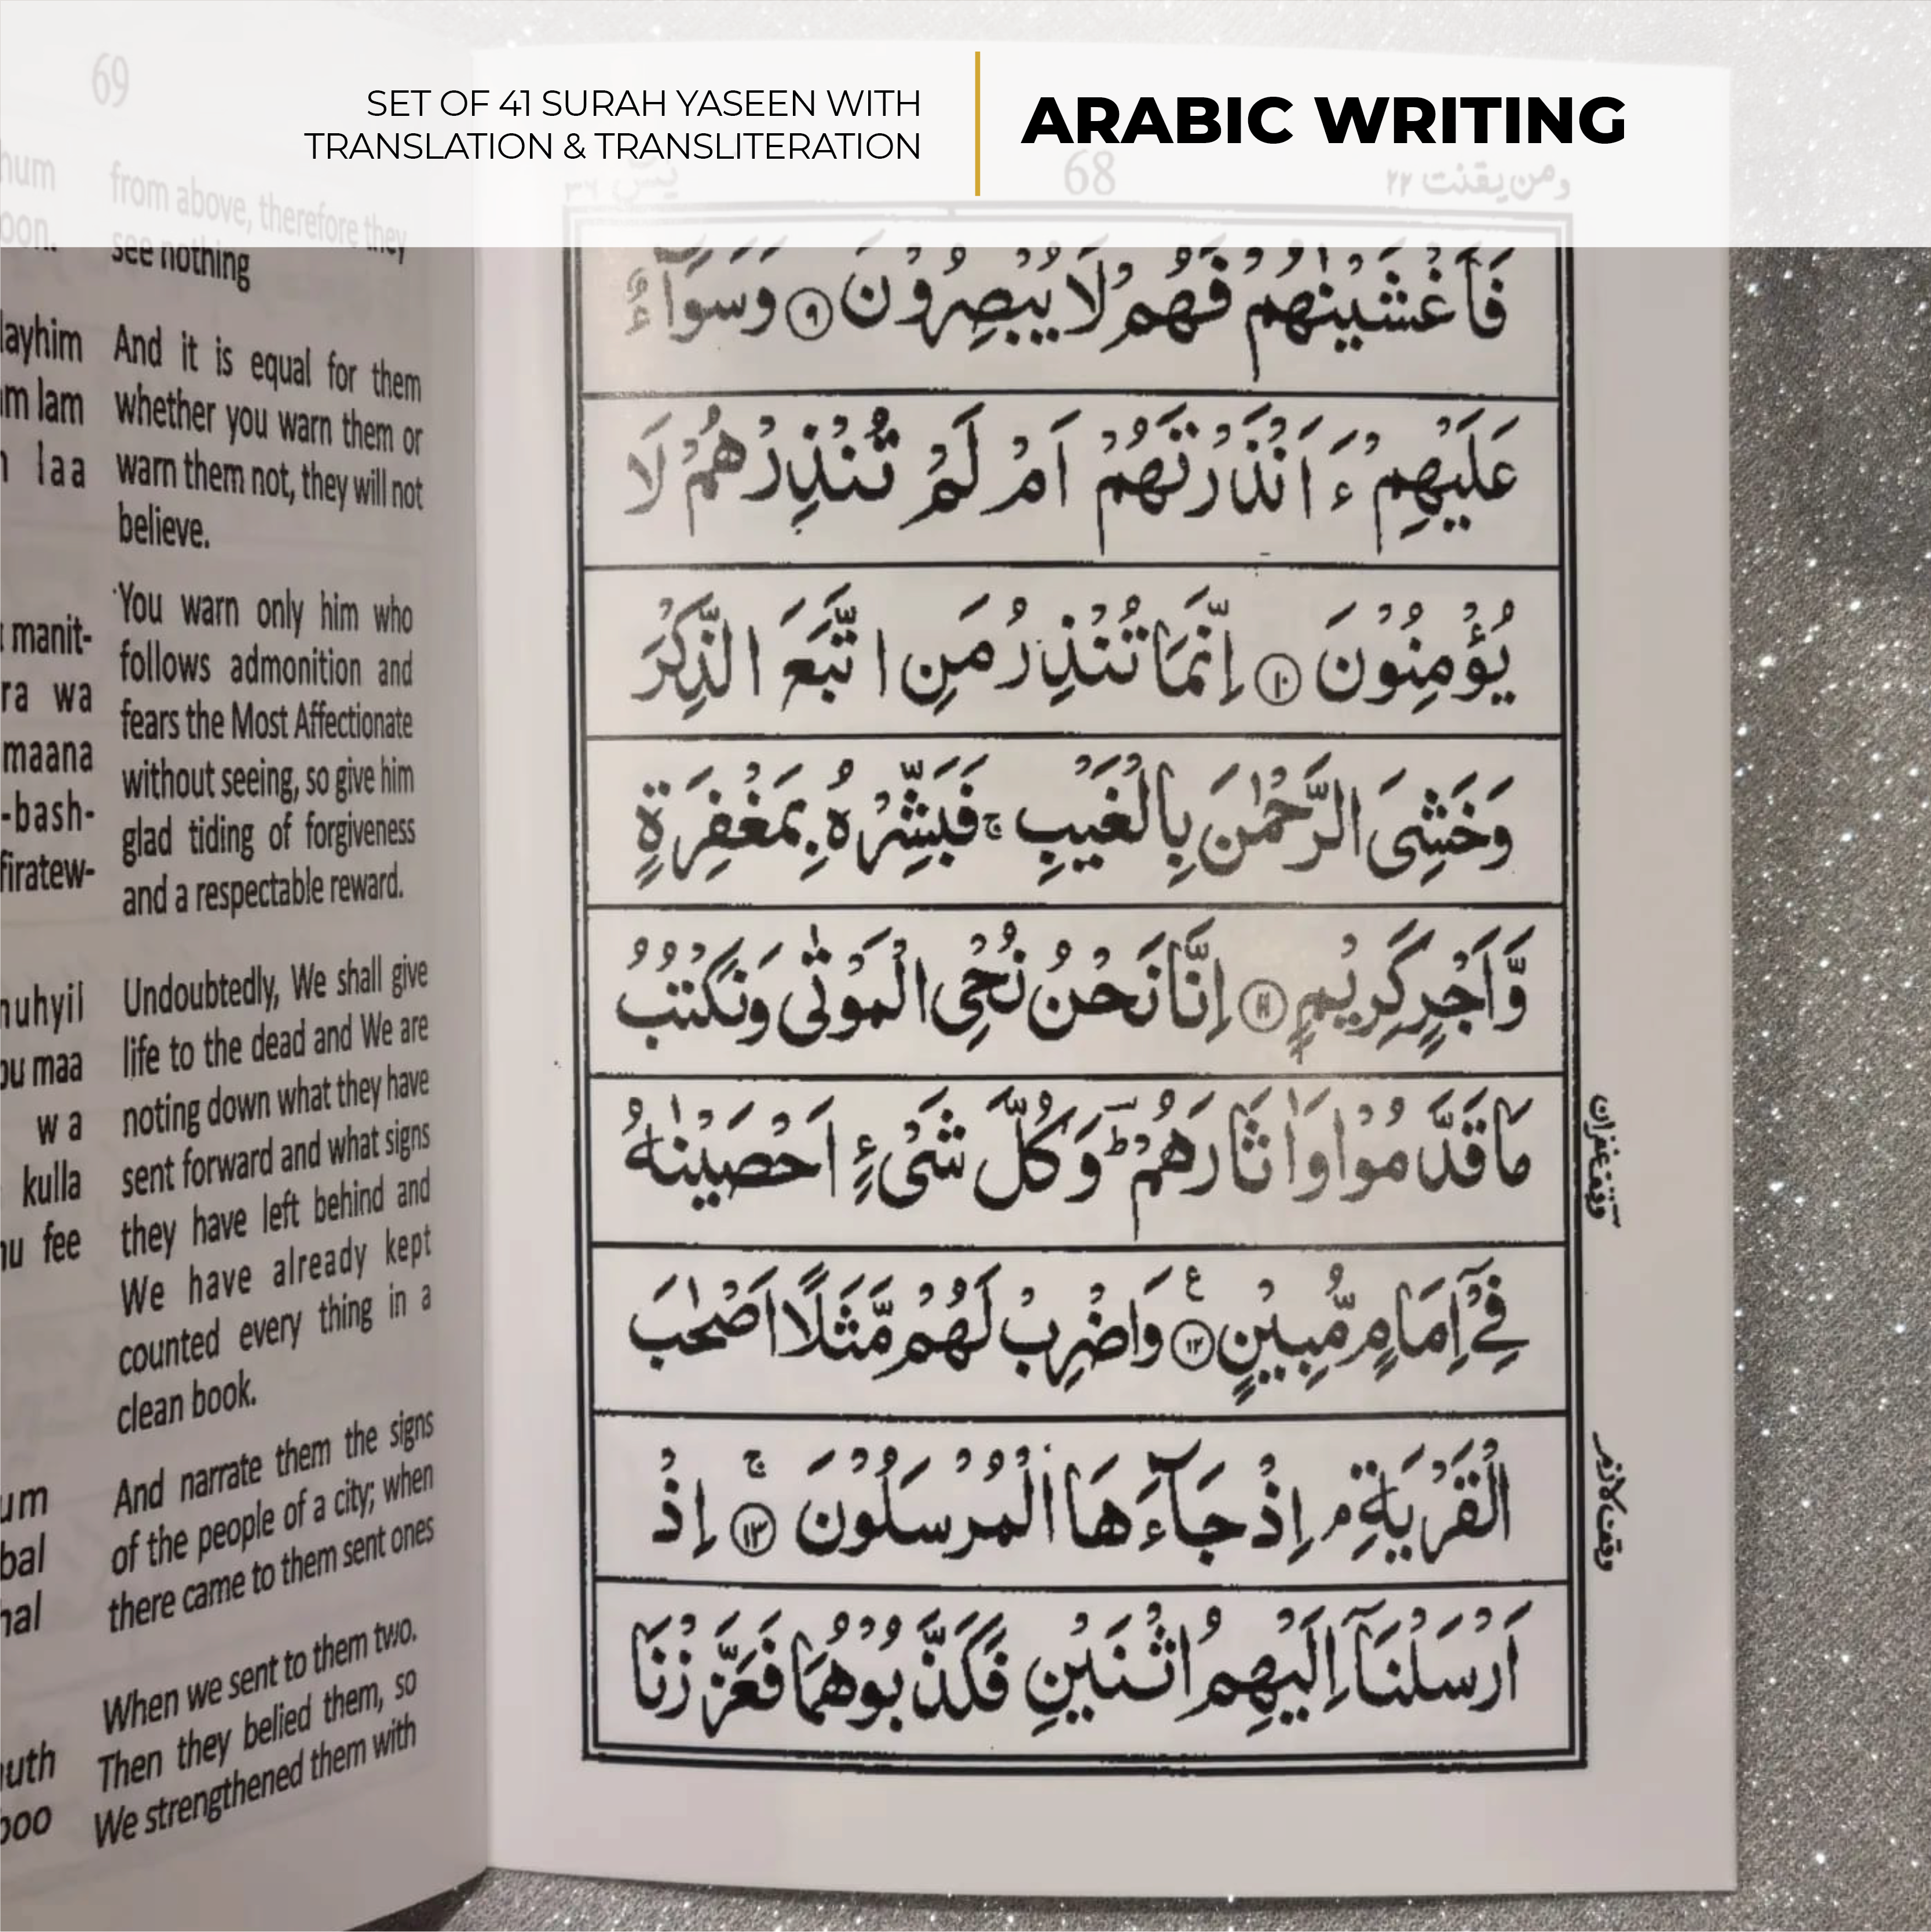 SET OF 41 SURAH YASEEN WITH
TRANSLATION & TRANSLITERATION
ARABIC WRITING
69
from above, therefore they
see nothing
And it is equal for them
whether you warn them or
warn them not, they will not
believe.
You warn only him who
follows admonition and
fears the Most Affectionate
without seeing, so give him
glad tiding of forgiveness
and a respectable reward.
Undoubtedly, We shall give
life to the dead and We are
noting down what they have
sent forward and what signs
they have left behind and
We have already kept
counted every thing in a
clean book.
And narrate them the signs
of the people of a city; when
there came to them sent ones
When we sent to them two.
Then they belied them, so
We strengthened them with
hum
oon.
layhim
m lam
laa
manit-
ra wa
maana
-bash-
firatew-
nuhyil
ou maa
w a
kulla
nu fee
um
bal
hal
uth
boo
ومن يقنت ٢٢
68
يٰسٓ ٣٦
فَاَغْشَيْنٰهُمْ فَهُمْ لَا يُبْصِرُوْنَ ۹ وَسَوَآءٌ
عَلَيْهِمْ ءَاَنْذَرْتَهُمْ اَمْ لَمْ تُنْذِرْهُمْ لَا
يُؤْمِنُوْنَ ۱۰ اِنَّمَا تُنْذِرُ مَنِ اتَّبَعَ الذِّكْرَ
وَخَشِىَ الرَّحْمٰنَ بِالْغَيْبِ ۚ فَبَشِّرْهُ بِمَغْفِرَةٍ
وَّاَجْرٍ كَرِيْمٍ ۱۱ اِنَّا نَحْنُ نُحْىِ الْمَوْتٰى وَنَكْتُبُ
مَا قَدَّمُوْا وَاٰثَارَهُمْ ؕ وَكُلَّ شَىْءٍ اَحْصَيْنٰهُ
فِىْٓ اِمَامٍ مُّبِيْنٍ ۱۲ وَاضْرِبْ لَهُمْ مَّثَلًا اَصْحٰبَ
الْقَرْيَةِ ۘ اِذْ جَآءَهَا الْمُرْسَلُوْنَ ۱۳ اِذْ
اَرْسَلْنَآ اِلَيْهِمُ اثْنَيْنِ فَكَذَّبُوْهُمَا فَعَزَّزْنَا
وقف غفران
وقف لازم